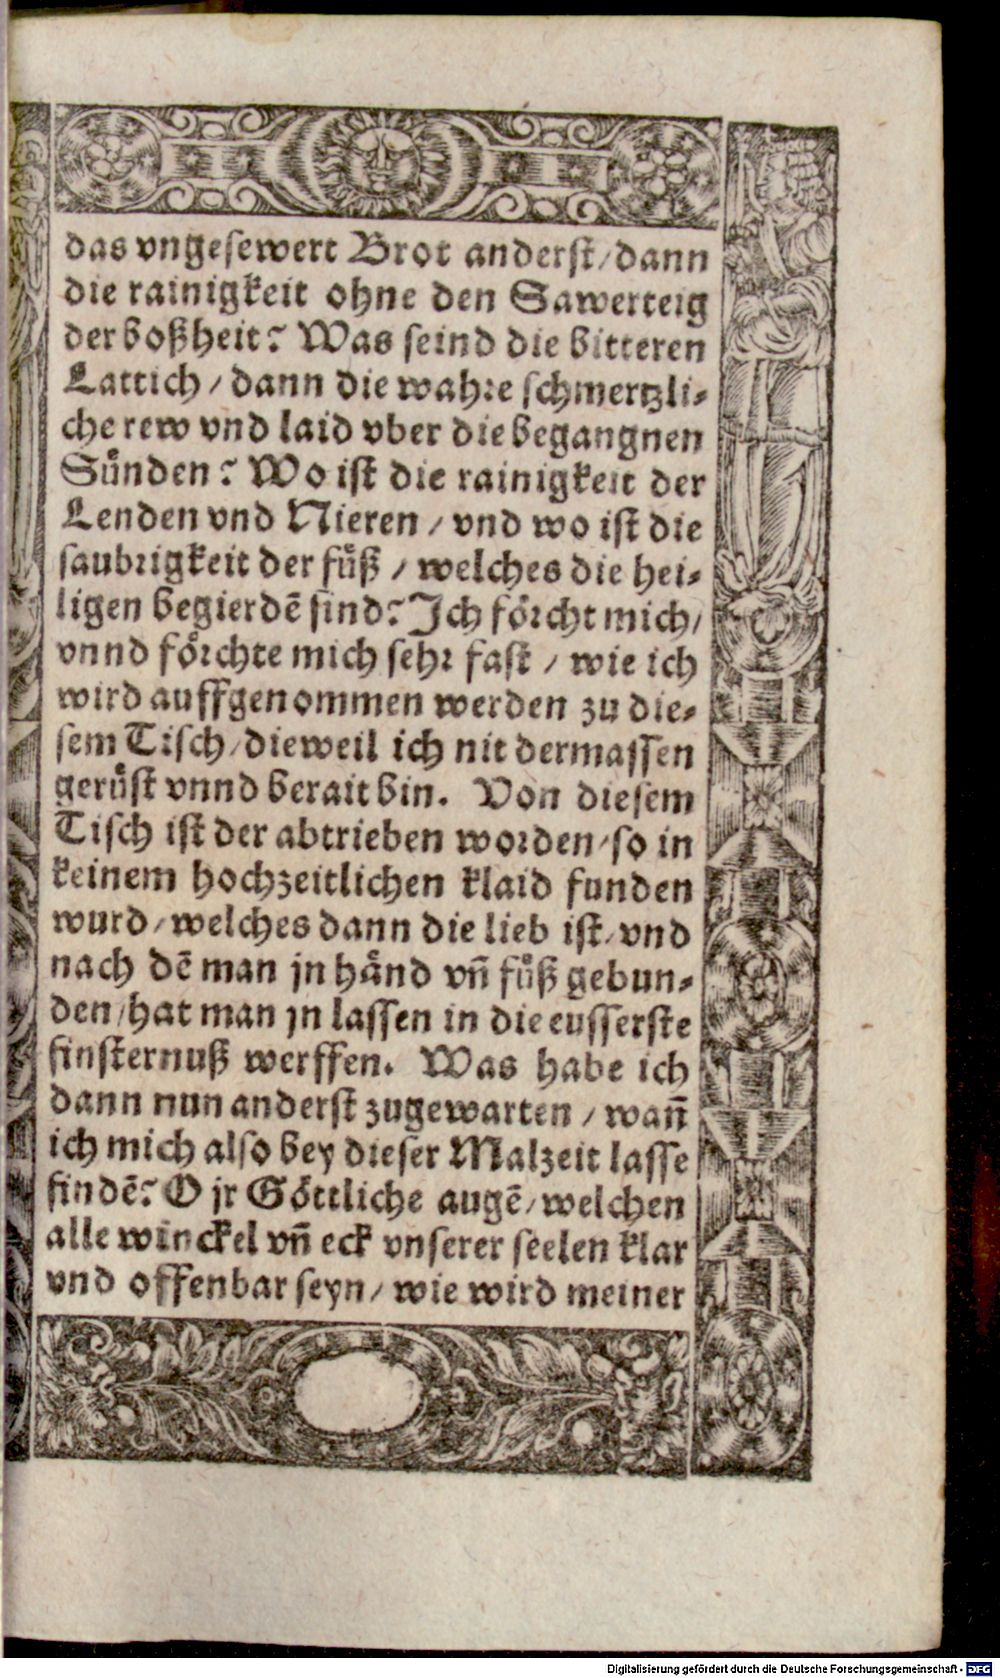 das vngesewert Brot anderst/dann
die rainigkeit ohne den Sawerteig
der boßheit? Was seind die bitteren
Lattich/dann die wahre schmertzli-
che rew vnd laid vber die begangnen
Sünden? Wo ist die rainigkeit der
Lenden vnd Nieren/vnd wo ist die
saubrigkeit der füß/welches die hei-
ligen begierdẽ sind? Ich förcht mich/
vnnd förchte mich sehr fast/wie ich
wird auffgenommen werden zu die-
sem Tisch/dieweil ich nit dermassen
gerüst vnnd berait bin. Von diesem
Tisch ist der abtrieben worden/so in
keinem hochzeitlichen klaid funden
wurd/welches dann die lieb ist/vnd
nach dẽ man jn händ vñ füß gebun-
den/hat man jn lassen in die eusserste
finsternuß werffen. Was habe ich
dann nun anderst zugewarten/wañ
ich mich also bey dieser Malzeit lasse
findẽ? O jr Göttliche augẽ/welchen
alle winckel vñ eck vnserer seelen klar
vnd offenbar seyn/wie wird meiner
Digitalisierung gefördert durch die Deutsche Forschungsgemeinschaft - DFG